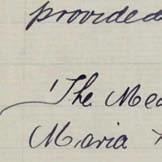 provided
The Mea
Maria